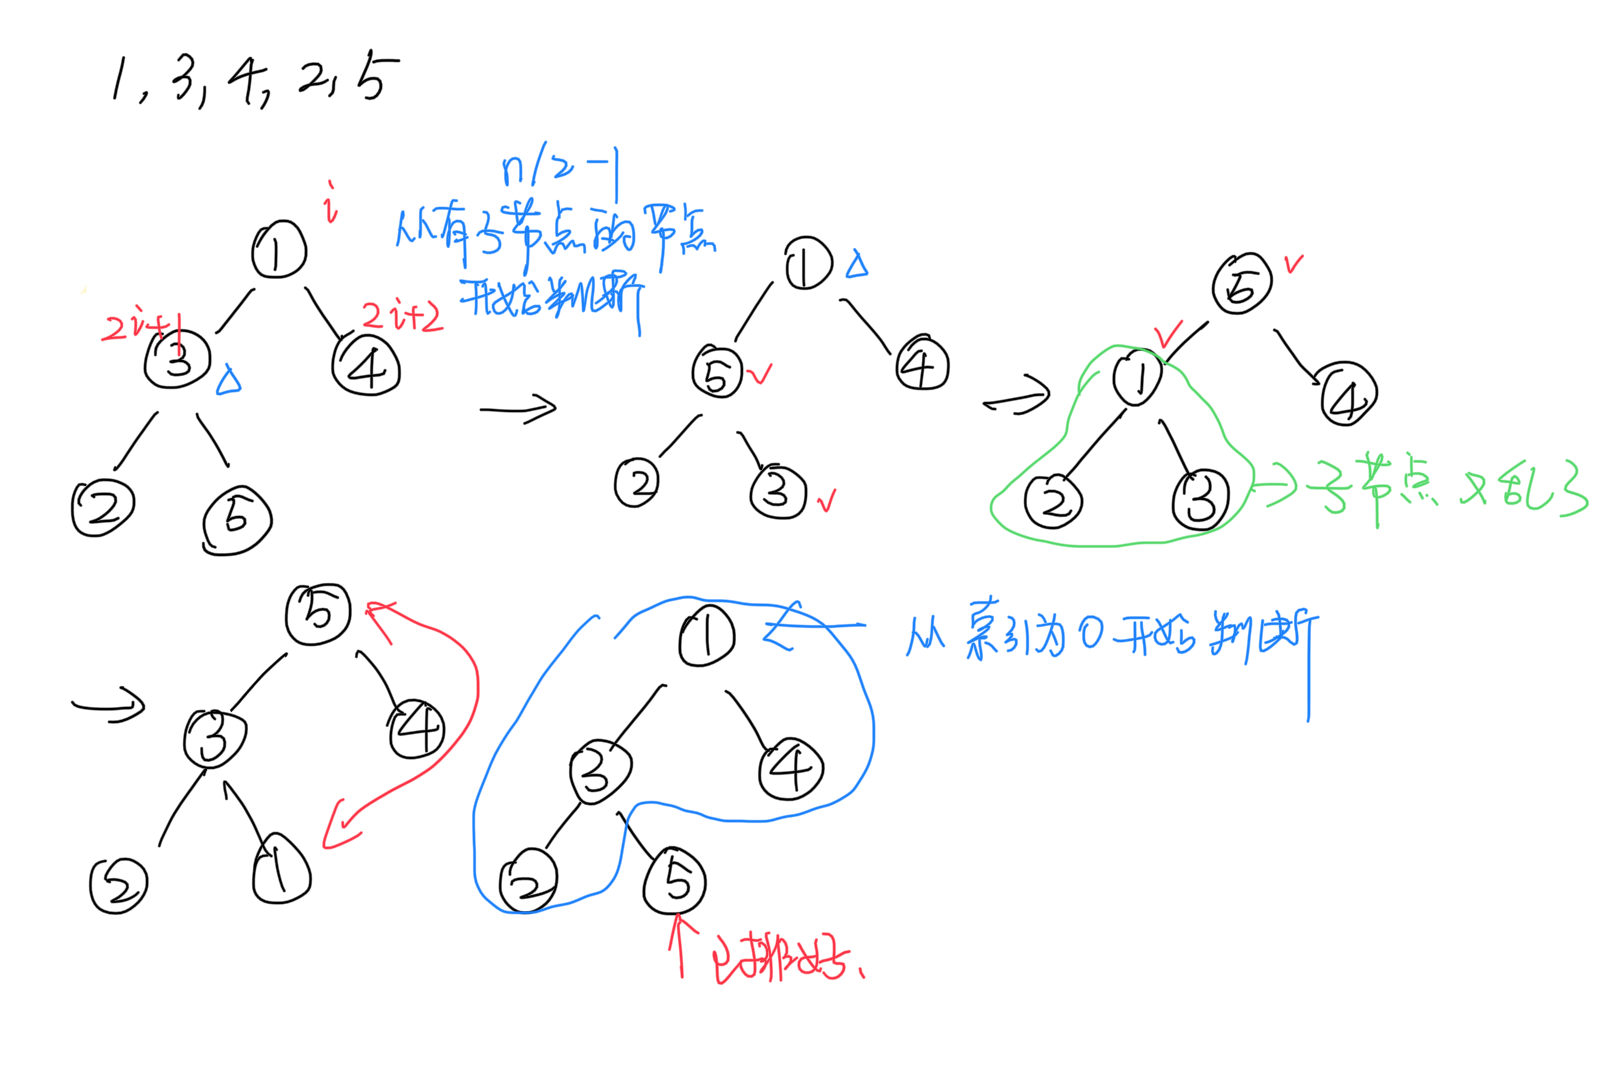 1, 3, 4, 2, 5
n/2-1
从有子节点的节点
开始判断
i
1
2i+1
2i+2
3
4
2
5
1
5
4
2
3
5
1
4
2
3
子节点又乱了
5
3
4
2
1
从索引为0开始判断
1
3
4
2
5
已排好、